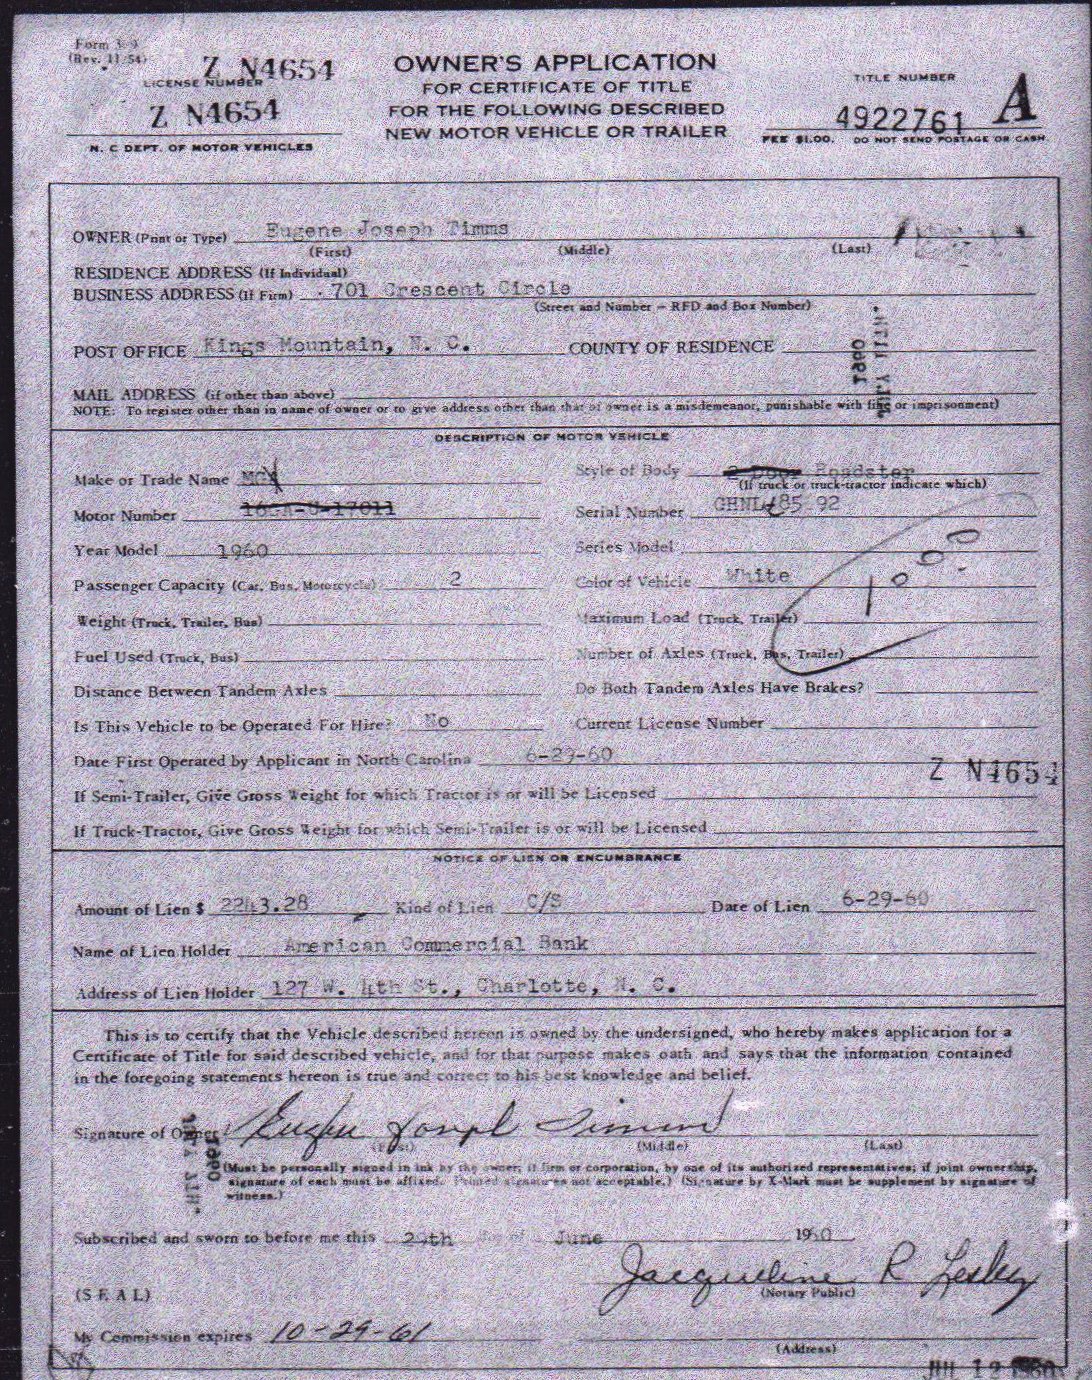 Form
(Rev. 11/54)
Z N4654
LICENSE NUMBER
Z N4654
N. C DEPT. OF MOTOR VEHICLES
OWNER'S APPLICATION
FOR CERTIFICATE OF TITLE
FOR THE FOLLOWING DESCRIBED
NEW MOTOR VEHICLE OR TRAILER
TITLE NUMBER
4922761 A
FEE $1.00. DO NOT SEND POSTAGE OR CASH
OWNER (Print or Type) Eugene Joseph Timms
(First) (Middle) (Last)
RESIDENCE ADDRESS (If Individual)
BUSINESS ADDRESS (If Firm) 701 Crescent Circle
(Street and Number — RFD and Box Number)
POST OFFICE Kings Mountain, N. C. COUNTY OF RESIDENCE
1960
MAIL ADDRESS (if other than above)
NOTE: To register other than in name of owner or to give address other than that of owner is a misdemeanor, punishable with fine or imprisonment)
DESCRIPTION OF MOTOR VEHICLE
Make or Trade Name MGA Style of Body 2 Door Roadster
(If truck or truck-tractor indicate which)
Motor Number 16GA-U-17011 Serial Number GHNL 85 92
Year Model 1960 Series Model
Passenger Capacity (Car, Bus, Motorcycle) 2 Color of Vehicle White
1 00
Weight (Truck, Trailer, Bus) Maximum Load (Truck, Trailer)
Fuel Used (Truck, Bus) Number of Axles (Truck, Bus, Trailer)
Distance Between Tandem Axles Do Both Tandem Axles Have Brakes?
Is This Vehicle to be Operated For Hire? No Current License Number
Date First Operated by Applicant in North Carolina 6-29-60
Z N4654
If Semi-Trailer, Give Gross Weight for which Tractor is or will be Licensed
If Truck-Tractor, Give Gross Weight for which Semi-Trailer is or will be Licensed
NOTICE OF LIEN OR ENCUMBRANCE
Amount of Lien $ 2243.28 Kind of Lien C/S Date of Lien 6-29-60
Name of Lien Holder American Commercial Bank
Address of Lien Holder 127 W. 4th St., Charlotte, N. C.
This is to certify that the Vehicle described hereon is owned by the undersigned, who hereby makes application for a
Certificate of Title for said described vehicle, and for that purpose makes oath and says that the information contained
in the foregoing statements hereon is true and correct to his best knowledge and belief.
Signature of Owner Eugene Joseph Timms
(First) (Middle) (Last)
1960
(Must be personally signed in ink by the owner; if firm or corporation, by one of its authorized representatives; if joint ownership,
signature of each must be affixed. Printed signatures not acceptable.) (Signature by X-Mark must be supplement by signature of
witness.)
Subscribed and sworn to before me this 29th day of June 1960
Jacqueline R Lesley
(Notary Public)
(SEAL)
My Commission expires 10-29-61
(Address)
JUL 12 1960